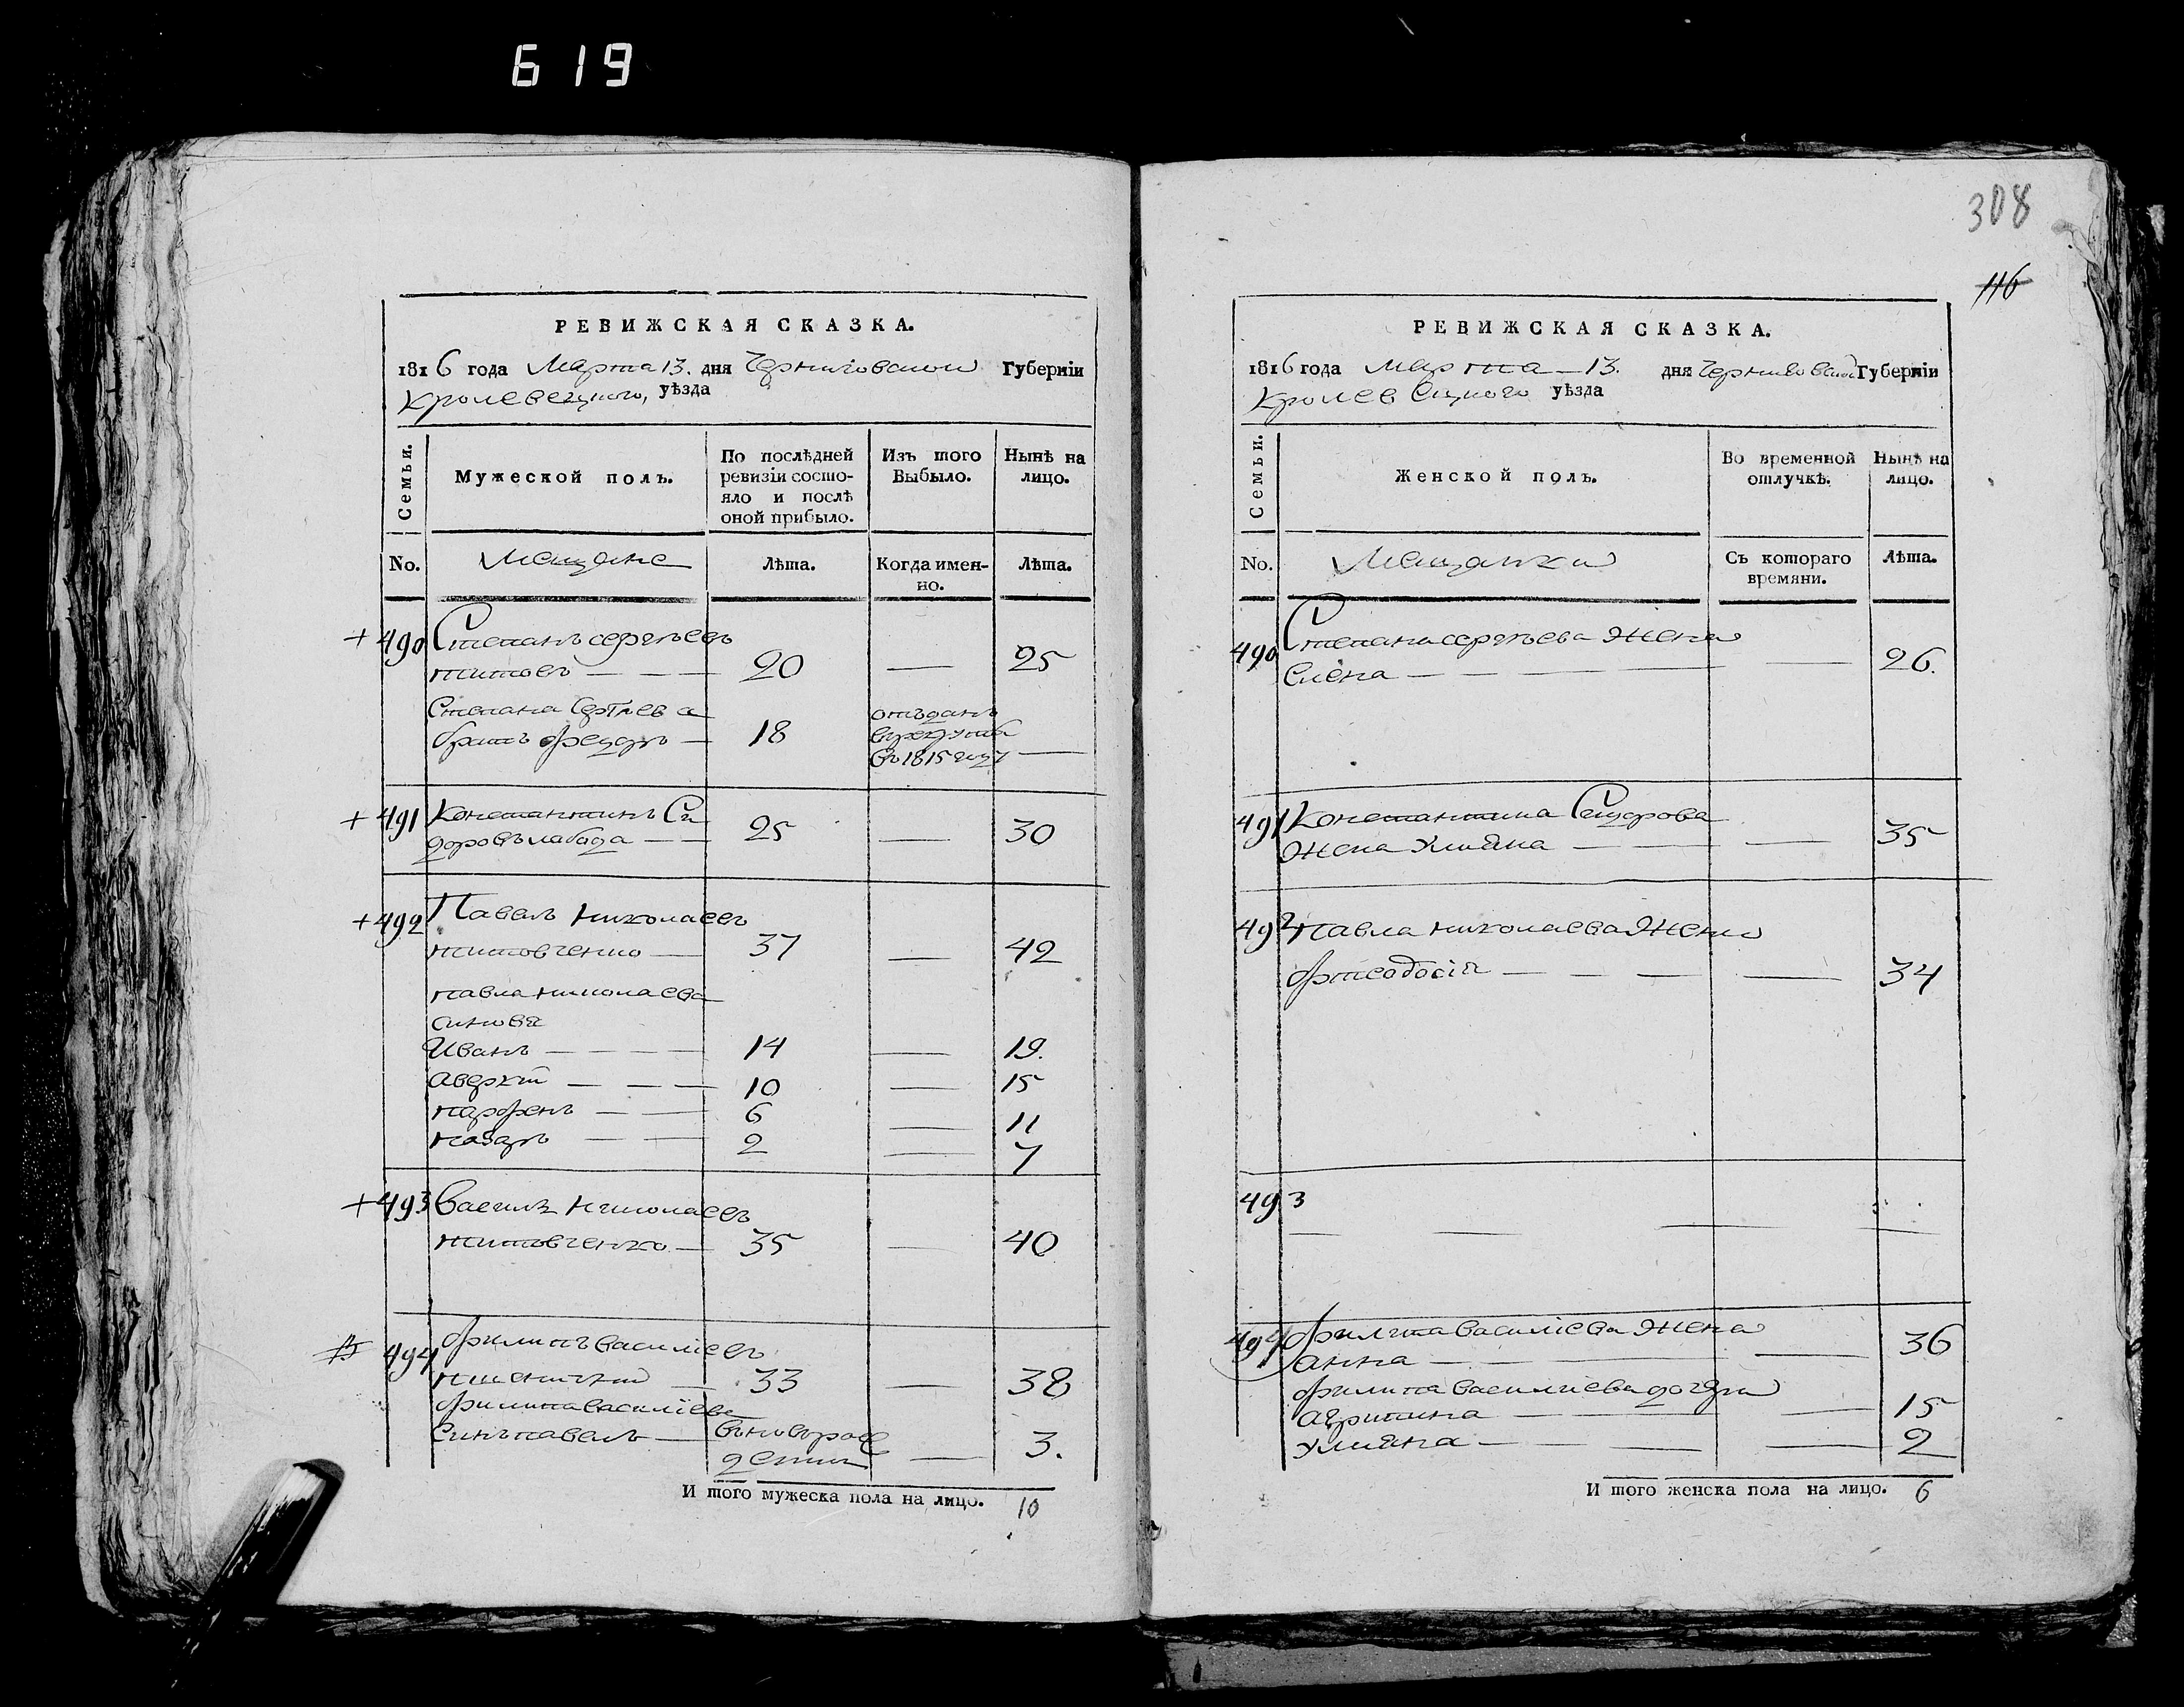 619
308
116
РЕВИЖСКАЯ СКАЗКА.
1816 года Марта 13. дня Черниговской Губерніи
Кролевецкого, уѣзда
Семьи.
Мужеской полъ.
По послѣдней ревизіи состо-
яло и послѣ
оной прибыло.
Изъ того
Выбыло.
Нынѣ на
лицо.
No.
Мещане
Лѣта.
Когда имен-
но.
Лѣта.
+ 490 Степанъ сергѣевъ
титовъ — — — 20 — 25
Степана Сергѣева
братъ федоръ — 18 отъданъ
врекруты
въ 1815 году —
+ 491 Константинъ Си
доровъ лабода — — 25 — 30
+ 492 Павелъ николаевъ
титовченко — 37 — 42
павла николаева
синовя
Иванъ — — — — 14 — 19.
аверкій — — — 10 — 15
парфенъ — — 6 — 11
назаръ — — 2 — 7
+ 493 Василь николаевъ
титовченко — 35 — 40
494 филипъ василіевъ
— 33 — 38
филипа василіева
синъ павелъ — вновьрож
денъ — 3.
И того мужеска пола на лицо. 10
РЕВИЖСКАЯ СКАЗКА.
1816 года марта — 13. дня Черниговской Губерніи
Кролевецкого уѣзда
Семьи.
Женской полъ.
Во временной
отлучкѣ.
Нынѣ на
лицо.
No.
Мещанки
Съ котораго
времяни.
Лѣта.
490 Степана сергѣева жена
Елена — — — — — 26.
491 Константина Сидорова
жена улияна — — — 35
492 павла николаева жена
фтеодосія — — — — 34
493
— — — —
494 филипа василіева жена
анна — — — — 36
филипа василиева дочери
агрипина — — — 15
улияна — — — — 2
И того женска пола на лицо. 6